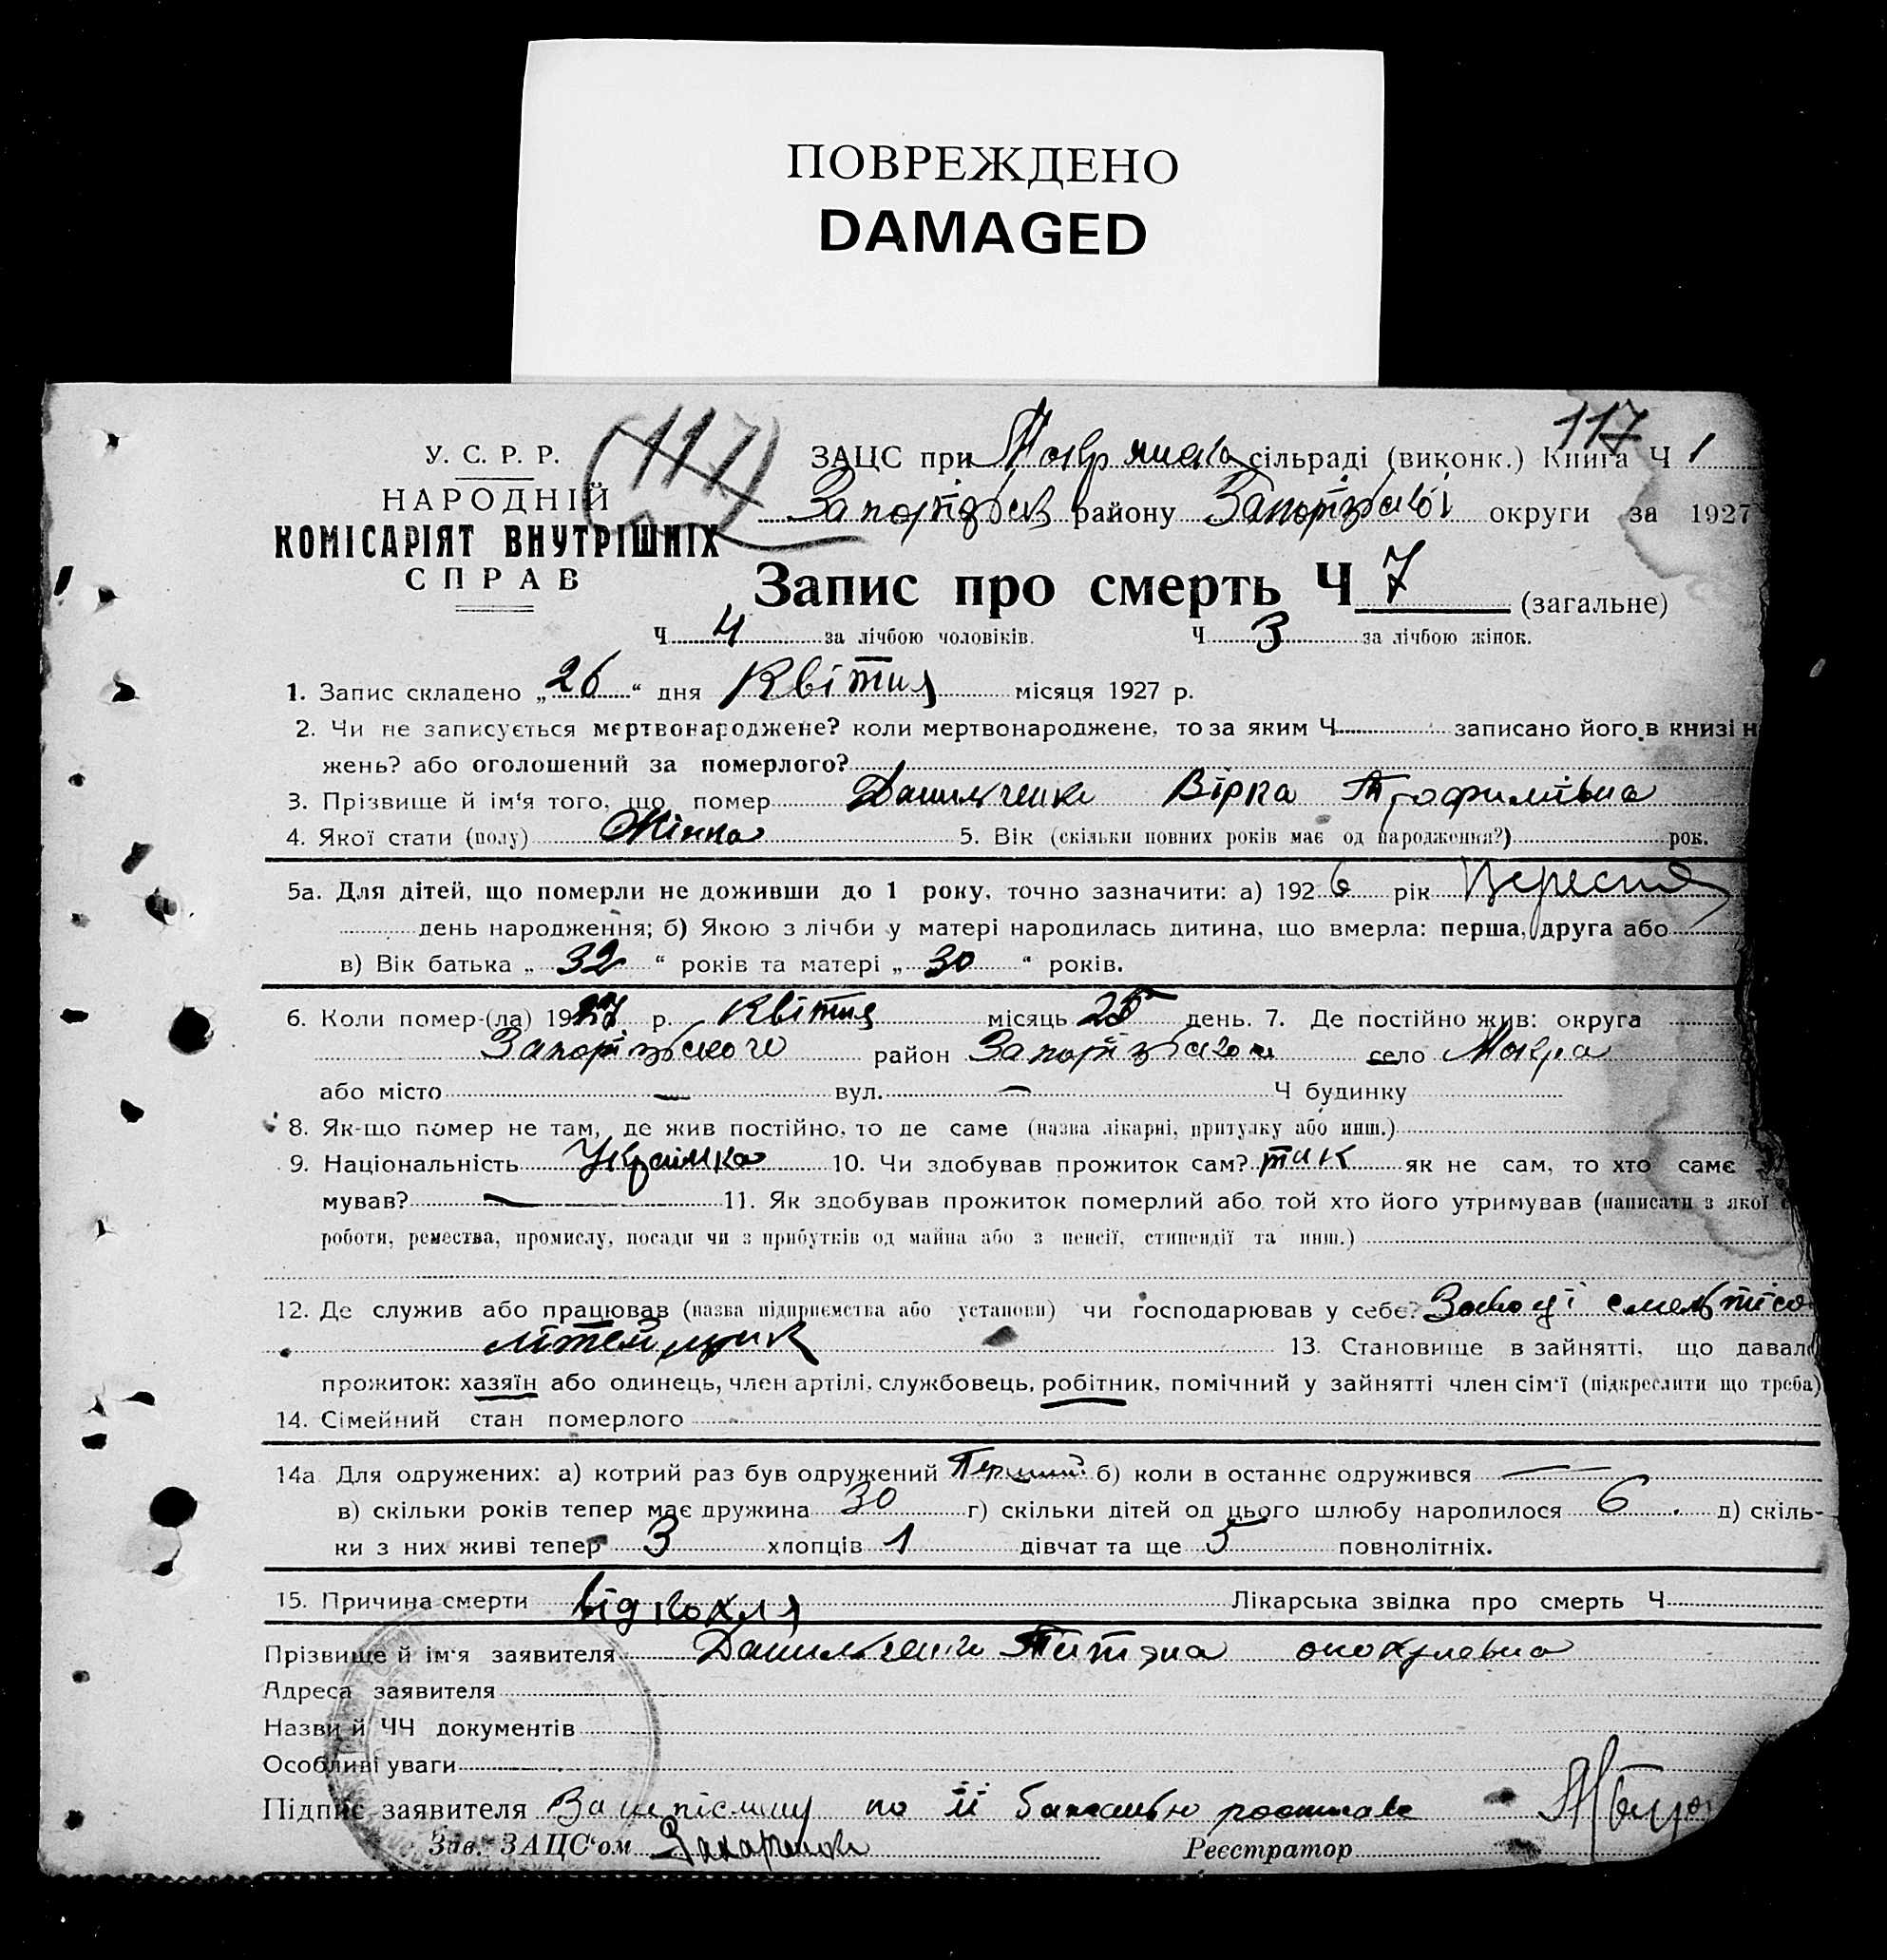 ПОВРЕЖДЕНО
DAMAGED
117
(117)
У. С. Р. Р.
НАРОДНІЙ
КОМІСАРІЯТ ВНУТРІШНІХ
СПРАВ
ЗАЦС при сільраді (виконк.) Книга Ч 1
району Запорізької округи за 1927
Запис про смерть Ч 7 (загальне)
Ч 4 за лічбою чоловіків. Ч 3 за лічбою жінок.
1. Запис складено „26“ дня Квітня місяця 1927 р.
2. Чи не записується мертвонароджене? коли мертвонароджене, то за яким Ч записано його в книзі н
жень? або оголошений за померлого?
3. Прізвище й ім'я того, що помер Данильченко Вірка Трофимівна
4. Якої стати (полу) Жінка 5. Вік (скільки повних років має од народження?) рок.
5а. Для дітей, що померли не доживши до 1 року, точно зазначити: а) 1926 рік Вересня
день народження; б) Якою з лічби у матері народилась дитина, що вмерла: перша, друга або
в) Вік батька „32“ років та матері „30“ років.
6. Коли помер-(ла) 1927 р. Квітня місяць 25 день. 7. Де постійно жив: округа
Запорізького район Запорізького село Мокра
або місто — вул. — Ч будинку
8. Як-що помер не там, де жив постійно, то де саме (назва лікарні, притулку або инш.)
9. Національність Українка 10. Чи здобував прожиток сам? так як не сам, то хто саме
мував? — 11. Як здобував прожиток померлий або той хто його утримував (написати з якої с
роботи, ремества, промислу, посади чи з прибутків од майна або з пенсії, стипендії та инш.)
12. Де служив або працював (назва підприємства або установи) чи господарював у себе? Заводі
літейщик 13. Становище в зайнятті, що давало
прожиток: хазяїн або одинець, член артілі, службовець, робітник, помічний у зайнятті член сім'ї (підкреслити що треба)
14. Сімейний стан померлого
14а Для одружених: а) котрий раз був одружений Перший б) коли в останнє одружився —
в) скільки років тепер має дружина 30 г) скільки дітей од цього шлюбу народилося 6 д) скіль-
ки з них живі тепер 3 хлопців 1 дівчат та ще 5 повнолітніх.
15. Причина смерти від Лікарська звідка про смерть Ч
Прізвище й ім'я заявителя Данильченко Титяна
Адреса заявителя
Назви й ЧЧ документів
Особливі уваги
Підпис заявителя За по її
Зав. ЗАЦС'ом Захарченко Реєстратор